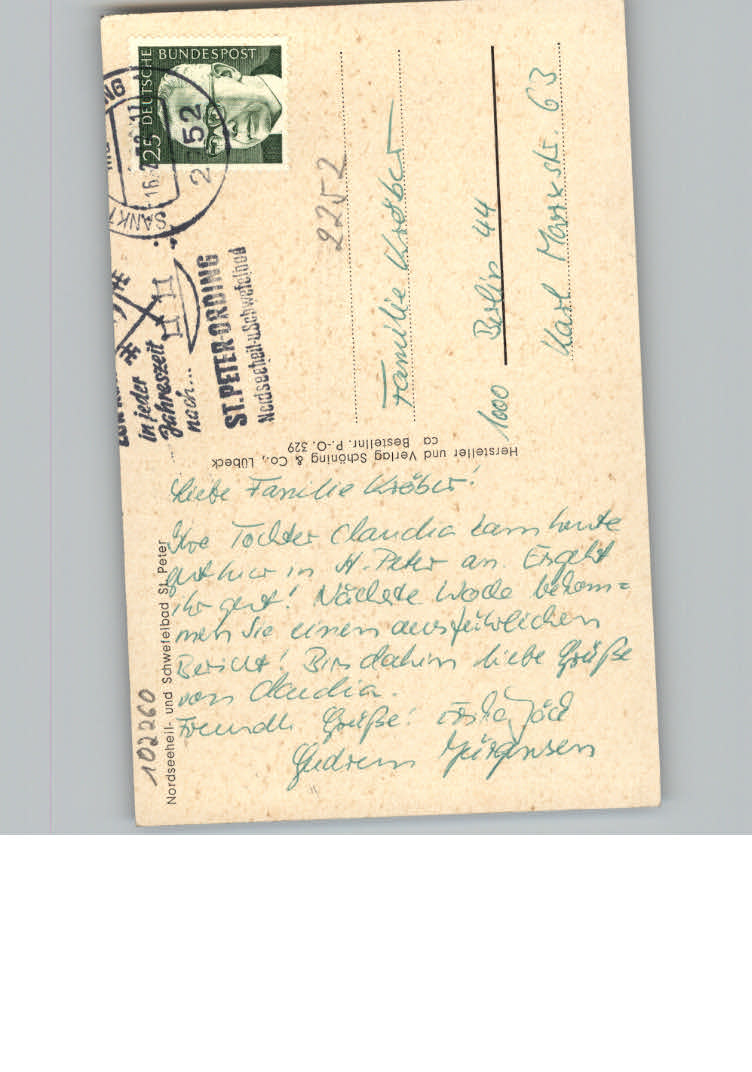 Liebe Familie Kröber!
Ihre Tochter Claudia kam heute
gut hier in St. Peter an. Es geht
ihr gut! Nächste Woche bekom=
men Sie einen ausführlichen
Bericht! Bis dahin liebe Grüße
von Claudia.
Freundl. Grüße!
Gudrun Jürgensen
Nordseeheil- und Schwefelbad St. Peter
102260
Hersteller und Verlag Schöning & Co., Lübeck
ca Bestellnr. P.-O. 329
DEUTSCHE BUNDESPOST
25
SANKT
2252
in jeder
Jahreszeit
nach...
ST.PETER-ORDING
Nordseeheil-u.Schwefelbad
2252
Familie Kröber
1000 Berlin 44
Karl Marx str. 63